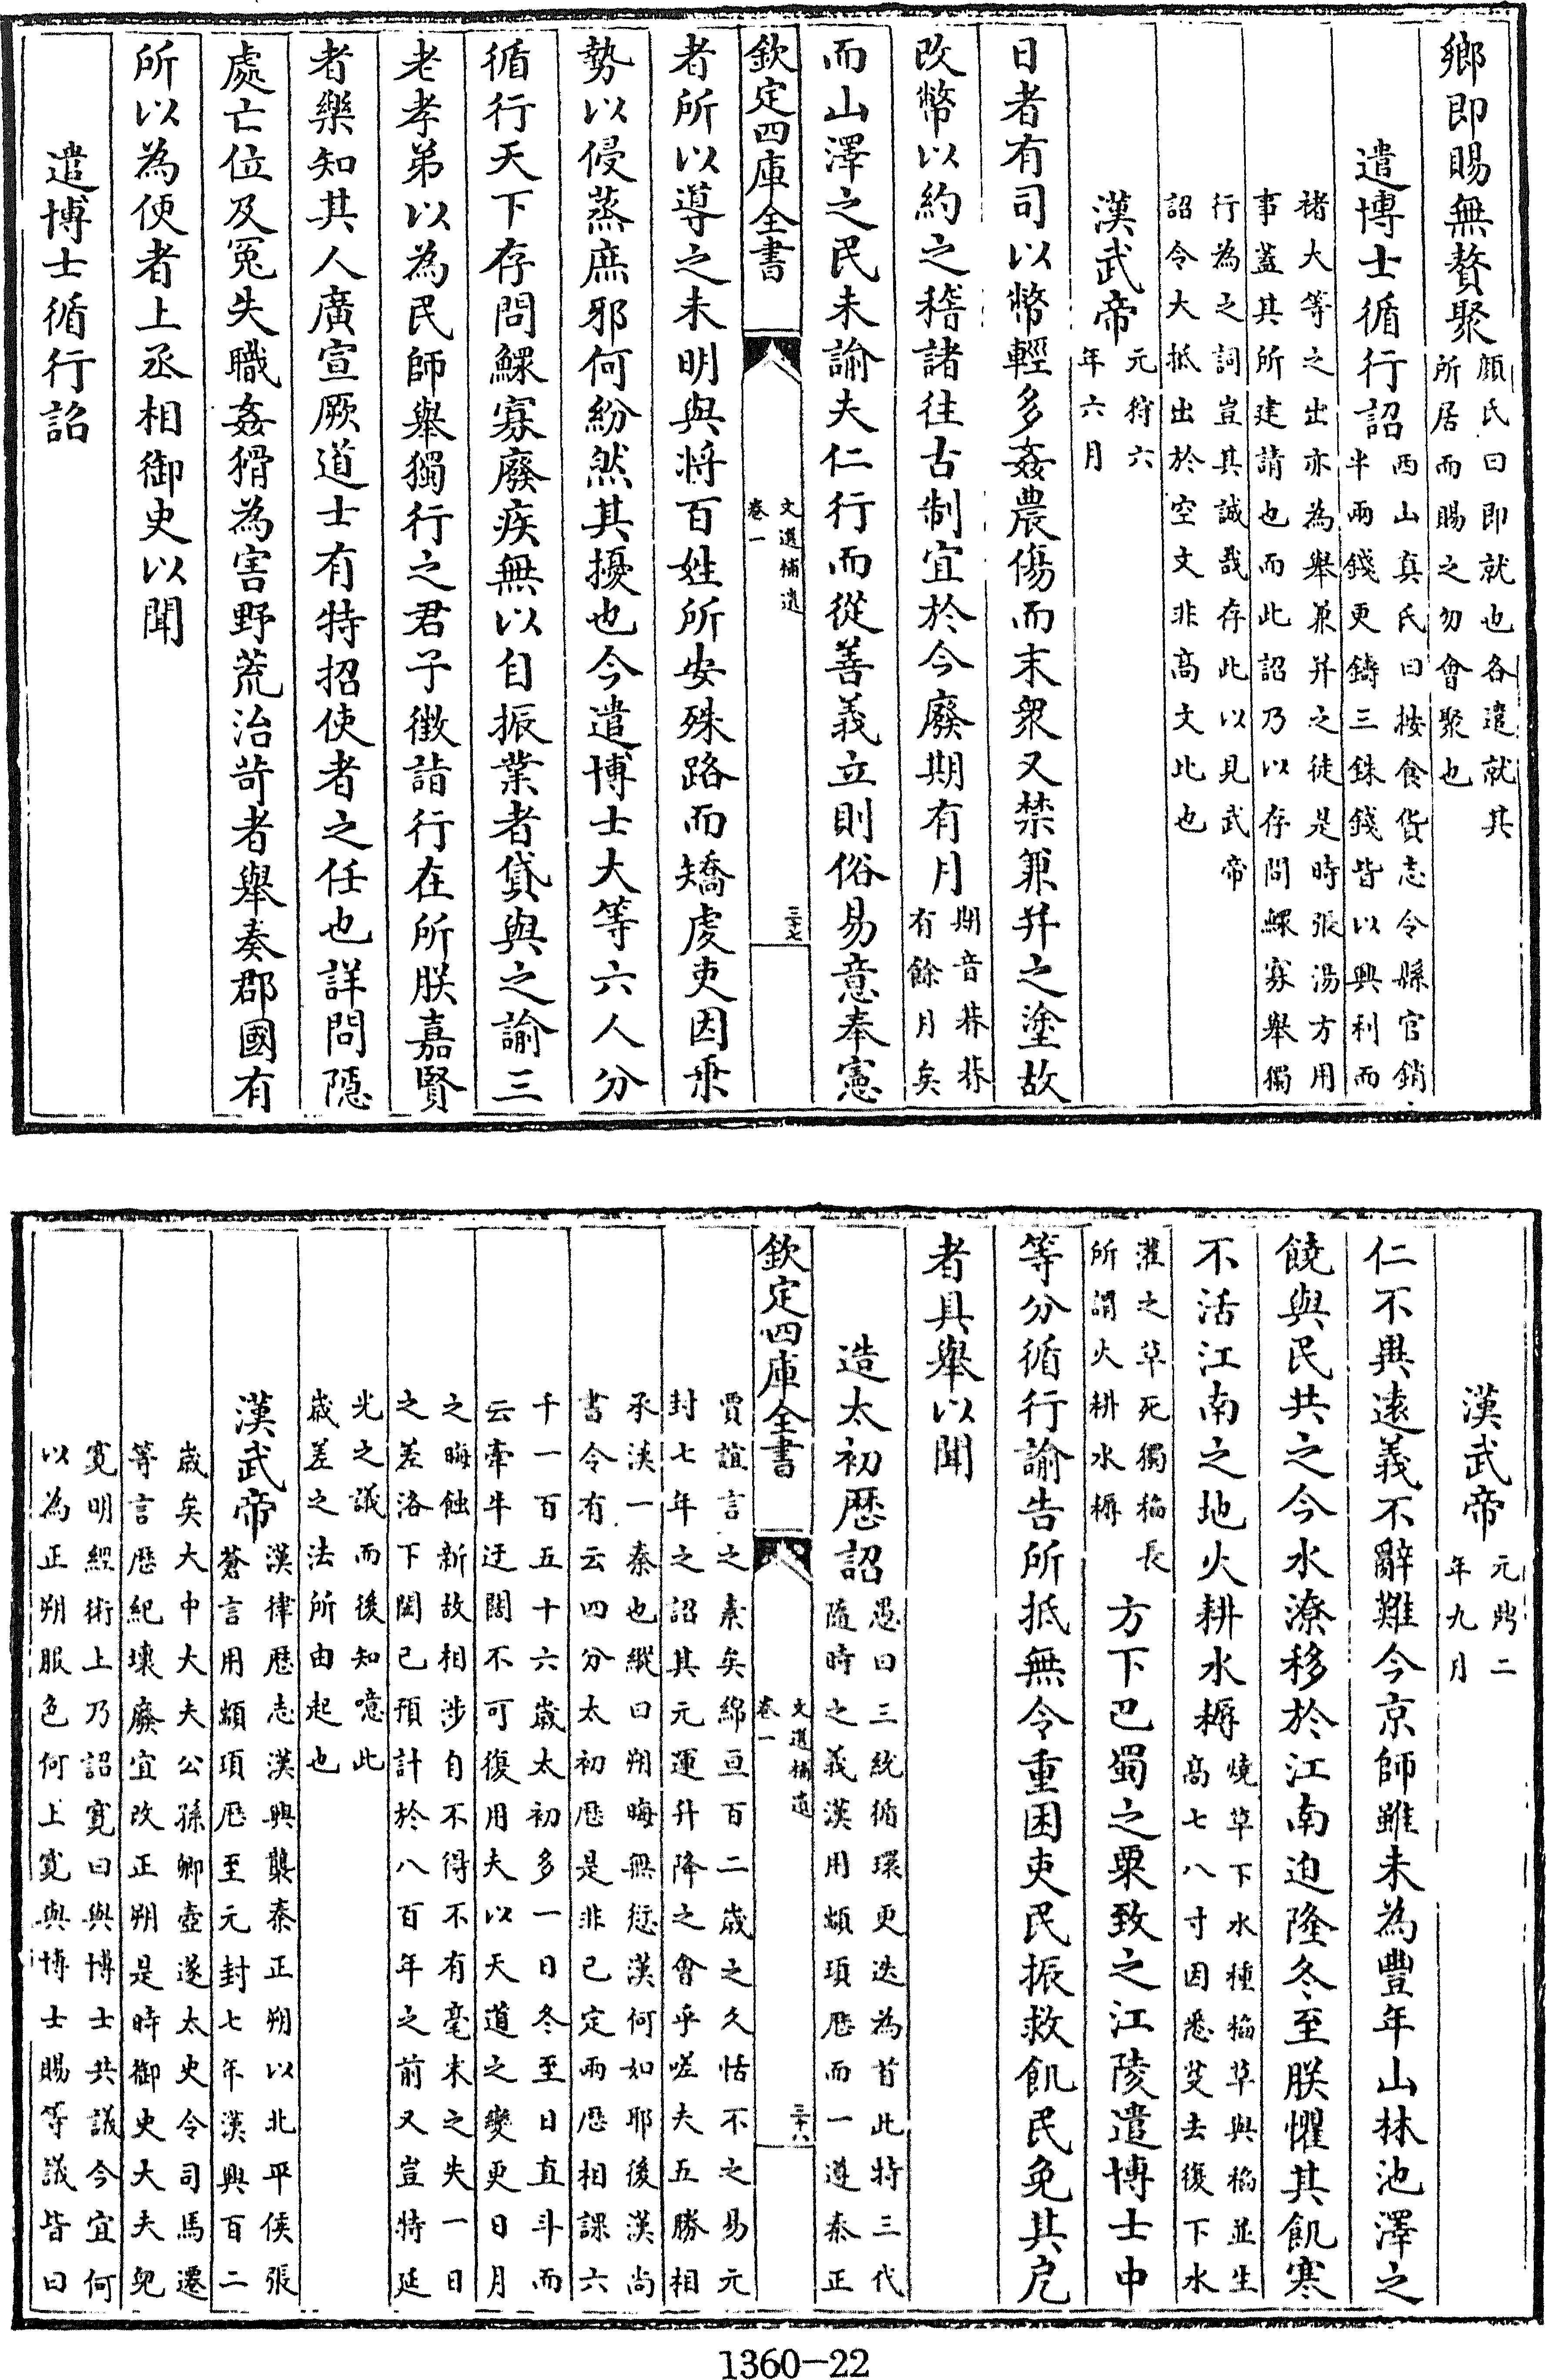 鄉即賜無贅聚顔氏曰即就也各遣就其所居而賜之勿會聚也
遣博士循行詔西山真氏曰按食貨志令縣官銷半兩錢更鑄三銖錢皆以興利而
褚大等之出亦為舉兼并之徒是時張湯方用事蓋其所建請也而此詔乃以存問鰥寡舉獨
行為之詞豈其誠哉存此以見武帝詔令大抵出於空文非高文比也
漢武帝元狩六年六月
日者有司以幣輕多姦農傷而末衆又禁兼并之塗故
改幣以約之稽諸往古制宜於今廢期有月期音朞朞有餘月矣
而山澤之民未諭夫仁行而從善義立則俗易意奉憲
欽定四庫全書 文選補遺卷一 三十七
者所以導之未明與将百姓所安殊路而矯虔吏因乗
勢以侵蒸庶邪何紛然其擾也今遣博士大等六人分
循行天下存問鰥寡廢疾無以自振業者貸與之諭三
老孝弟以為民師舉獨行之君子徵詣行在所朕嘉賢
者樂知其人廣宣厥道士有特招使者之任也詳問隱
處亡位及冤失職姦猾為害野荒治苛者舉奏郡國有
所以為使者上丞相御史以聞
遣博士循行詔
漢武帝元鼎二年九月
仁不異遠義不辭難今京師雖未為豐年山林池澤之
饒與民共之今水潦移於江南迫隆冬至朕懼其飢寒
不活江南之地火耕水耨燒草下水種稻草與稻並生高七八寸因悉芟去復下水
灌之草死獨稻長所謂火耕水耨方下巴蜀之粟致之江陵遣博士中
等分循行諭告所抵無令重困吏民振救飢民免其戹
者具舉以聞
造太初厯詔愚曰三統循環更迭為首此特三代隨時之義漢用顓頊厯而一遵秦正
欽定四庫全書 文選補遺卷一 三十八
賈誼言之素矣綿亘百二歲之久恬不之易元封七年之詔其元運升降之會乎嗟夫五勝相
承漢一秦也縱曰朔晦無愆漢何如耶後漢尚書令有云四分太初厯是非已定兩厯相課六
千一百五十六歲太初多一日冬至日直斗而云牽牛迂闊不可復用夫以天道之變更日月
之晦蝕新故相涉自不得不有毫末之失一日之差洛下閎已預計於八百年之前又豈特延
光之議而後知噫此歲差之法所由起也
漢武帝漢律厯志漢興襲秦正朔以北平侯張蒼言用顓頊厯至元封七年漢興百二
歲矣大中大夫公孫卿壺遂太史令司馬遷等言厯紀壞廢宜改正朔是時御史大夫兒
寛明經術上乃詔寛曰與博士共議今宜何以為正朔服色何上寛與博士賜等議皆曰
1360-22